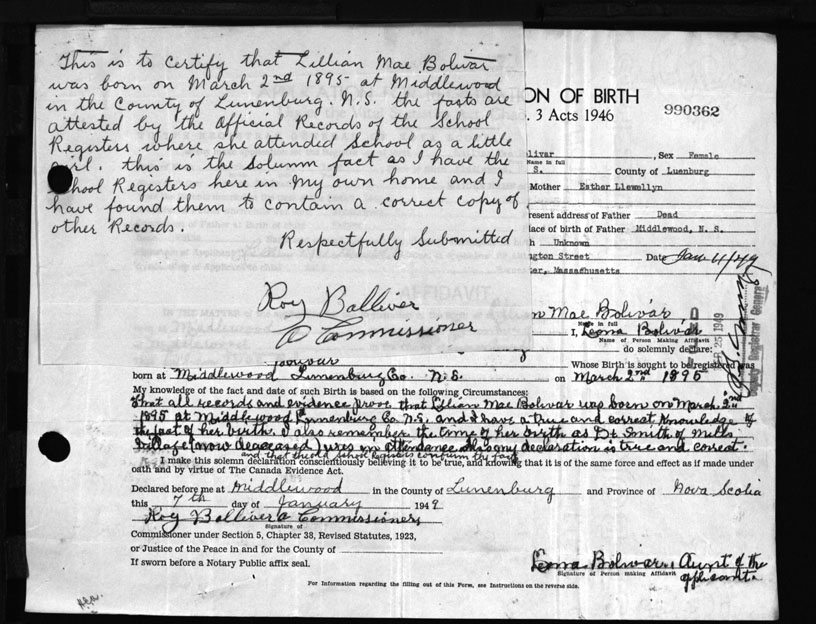 This is to certify that Lillian Mae Bolivar
was born on March 2nd 1895 at Middlewood
in the County of Lunenburg. N.S. the facts are
attested by the Official Records of the School
Registers where she attended School as a little
girl. this is the Solumn fact as I have the
School Registers here in my own home and I
have found them to contain a correct copy of
other Records.
Respectfully Submitted
Roy Balliver
A Commissioner
ON OF BIRTH
. 3 Acts 1946
990362
olivar , Sex Female
Name in full
S. County of Luenburg
Mother Esther Llewellyn
resent address of Father Dead
lace of birth of Father Middlewood, N. S.
h Unknown
ngton Street Date Jan 4/49
ter, Massachusetts
AFFIDAVIT
n Mae Bolivar
Name in full
I, Leona Bolivar
Name of Person Making Affidavit
do solemnly declare:
Whose Birth is sought to be registered was
born at Middlewood Lunenburg Co. N.S. on March 2nd 1895
My knowledge of the fact and date of such Birth is based on the following Circumstances:
That all records and evidence prove that Lilian Mae Bolivar was born on March 2nd
1895 at Middlewood Lunenburg Co N.S. and I have a true and correct knowledge of
the fact of her birth. I also remember the time of her birth as Dr Smith of Mills
Village (now deceased) was in attendance this my declaration is true and correct.
and that the old School Registers confirm the fact
I make this solemn declaration conscientiously believing it to be true, and knowing that it is of the same force and effect as if made under
oath and by virtue of The Canada Evidence Act.
Declared before me at Middlewood in the County of Lunenburg and Province of Nova Scotia
this 7th day of January 1949
Roy Balliver a Commissioner
Signature of
Commissioner under Section 5, Chapter 38, Revised Statutes, 1923,
or Justice of the Peace in and for the County of
If sworn before a Notary Public affix seal.
Leona Bolivar, Aunt of the
applicant.
Signature of Person making Affidavit
For Information regarding the filling out of this Form, see Instructions on the reverse side.